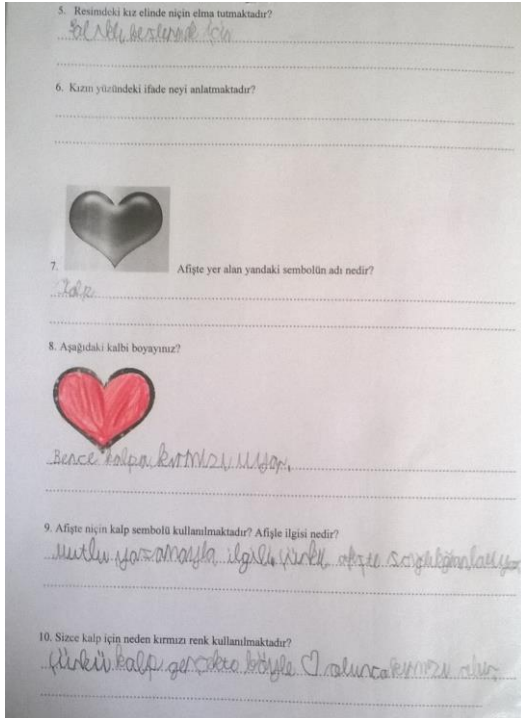 5. Resimdeki kız elinde niçin elma tutmaktadır?
beslenmek için
6. Kızın yüzündeki ifade neyi anlatmaktadır?
7. Afişte yer alan yandaki sembolün adı nedir?
Kalp
8. Aşağıdaki kalbi boyayınız?
Bence kalpa kırmızı uyar.
9. Afişte niçin kalp sembolü kullanılmaktadır? Afişle ilgisi nedir?
Mutlu yaşamayla ilgili çünkü afişte
10. Sizce kalp için neden kırmızı renk kullanılmaktadır?
Çünkü kalp gerçekte böyle ♡ olunca kırmızı olur